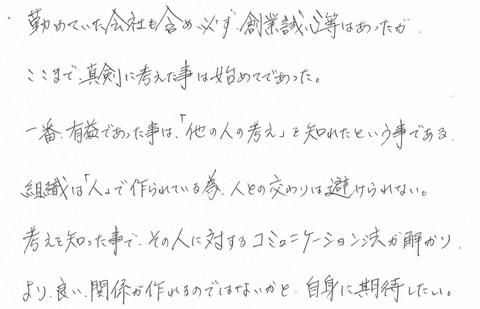 勤めていた会社も含め必ず、創業誠心等はあったが、
ここまで、真剣に考えた事は始めてであった。
一番、有益であった事は、「他の人の考え」を知れたという事である。
組織は「人」で作られている為、人との交わりは避けられない。
考えを知った事で、その人に対するコミュニケーション法が解かり、
より、良い、関係が作れるのではないかと、自身に期待したい。